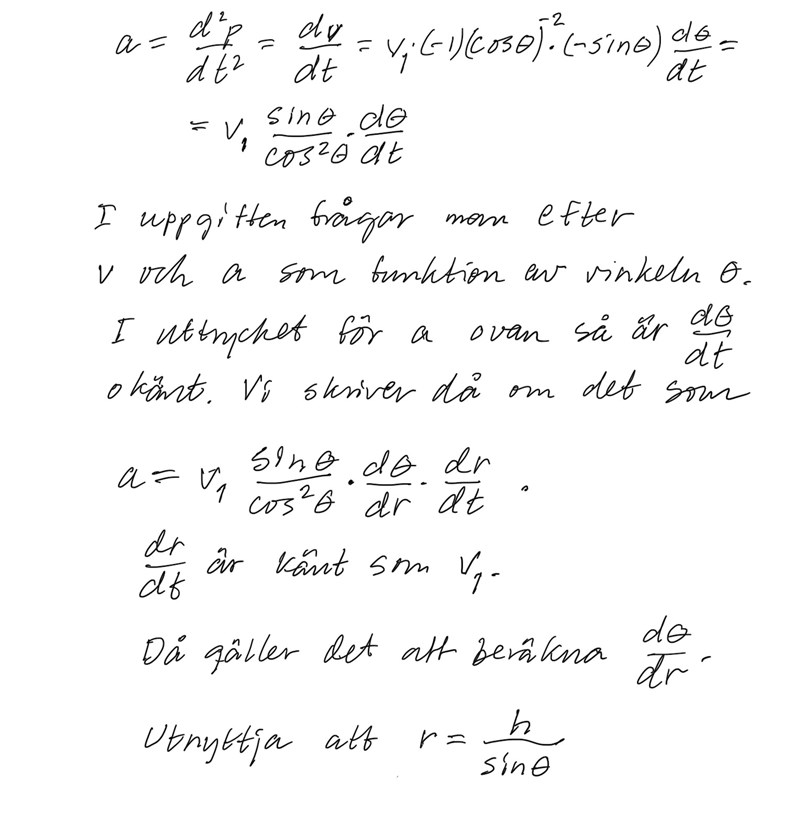 a = d²p/dt² = dv/dt = v₁·(-1)(cosθ)⁻²·(-sinθ) dθ/dt =
= v₁ sinθ/cos²θ · dθ/dt
I uppgiften frågar man efter
v och a som funktion av vinkeln θ.
I uttrycket för a ovan så är dθ/dt
okänt. Vi skriver då om det som
a = v₁ sinθ/cos²θ · dθ/dr · dr/dt .
dr/dt är känt som v₁.
Då gäller det att beräkna dθ/dr.
Utnyttja att r = h/sinθ